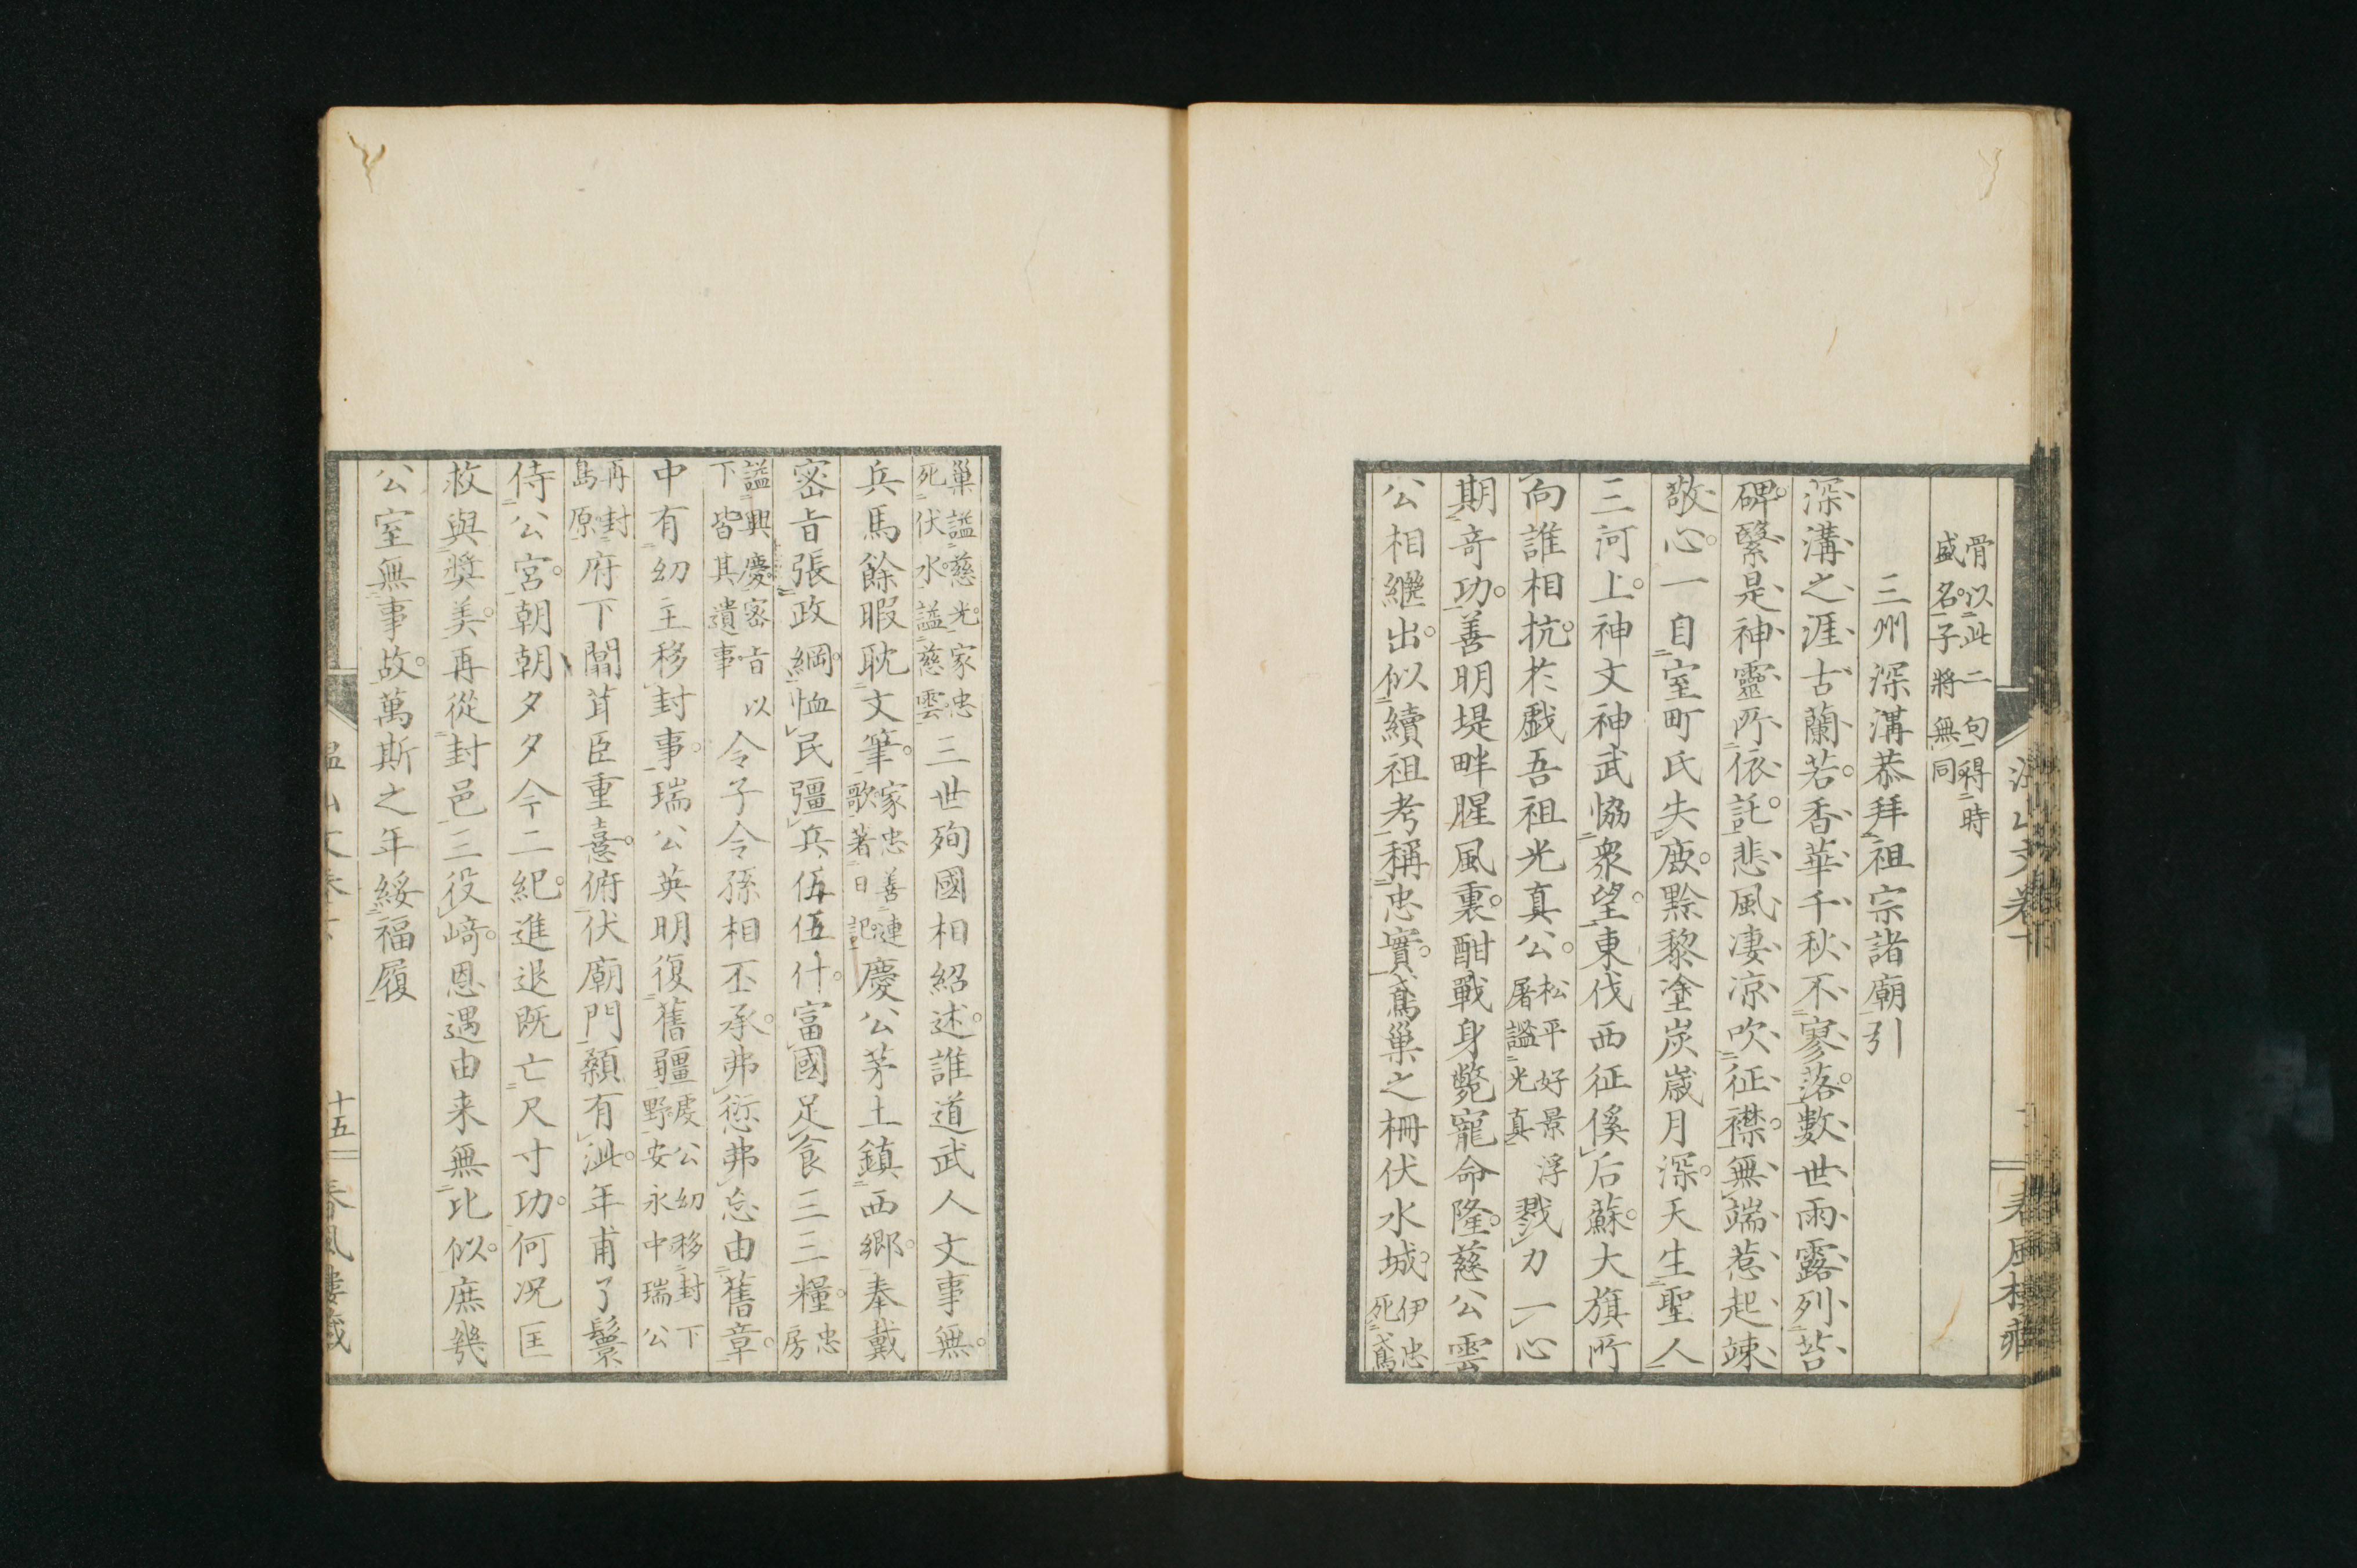 骨以此二句得時
盛名子將無同
三州深溝恭拜祖宗諸廟引
深溝之涯古蘭若香華千秋不寥落數世雨露列苔
碑繄是神靈所依託悲風凄凉吹征襟無端惹起竦
敬心一自室町氏失鹿黔黎塗炭歲月深天生聖人
三河上神文神武協衆望東伐西征徯后蘇大旗所
向誰相抗於戲吾祖光真公
松平好景浮
屠謚光真
戮力一心
期奇功善明堤畔腥風裏酣戰身斃寵命隆慈公雲
公相繼出似續祖考稱忠實鳶巢之柵伏水城
伊忠
死鳶
巢謚慈光家忠
死伏水謚慈雲
三世殉國相紹述誰道武人文事無
兵馬餘暇耽文筆
家忠善連
歌著日記
慶公茅土鎮西鄉奉戴
密旨張政綱恤民彊兵伍伍什富國足食三三糧
忠
房
謚興慶密旨以
下皆其遺事
令子令孫相丕承弗愆弗忘由舊章
中有幼主移封事瑞公英明復舊疆
慶公幼移封下
野安永中瑞公
再封
島原
府下闒茸臣重憙俯伏廟門顙有泚年甫丫鬟
侍公宮朝朝夕夕今二紀進退既亡尺寸功何況匡
救與奬美再從封邑三役﨑恩遇由来無比似庶幾
公室無事故萬斯之年綏福履
十五